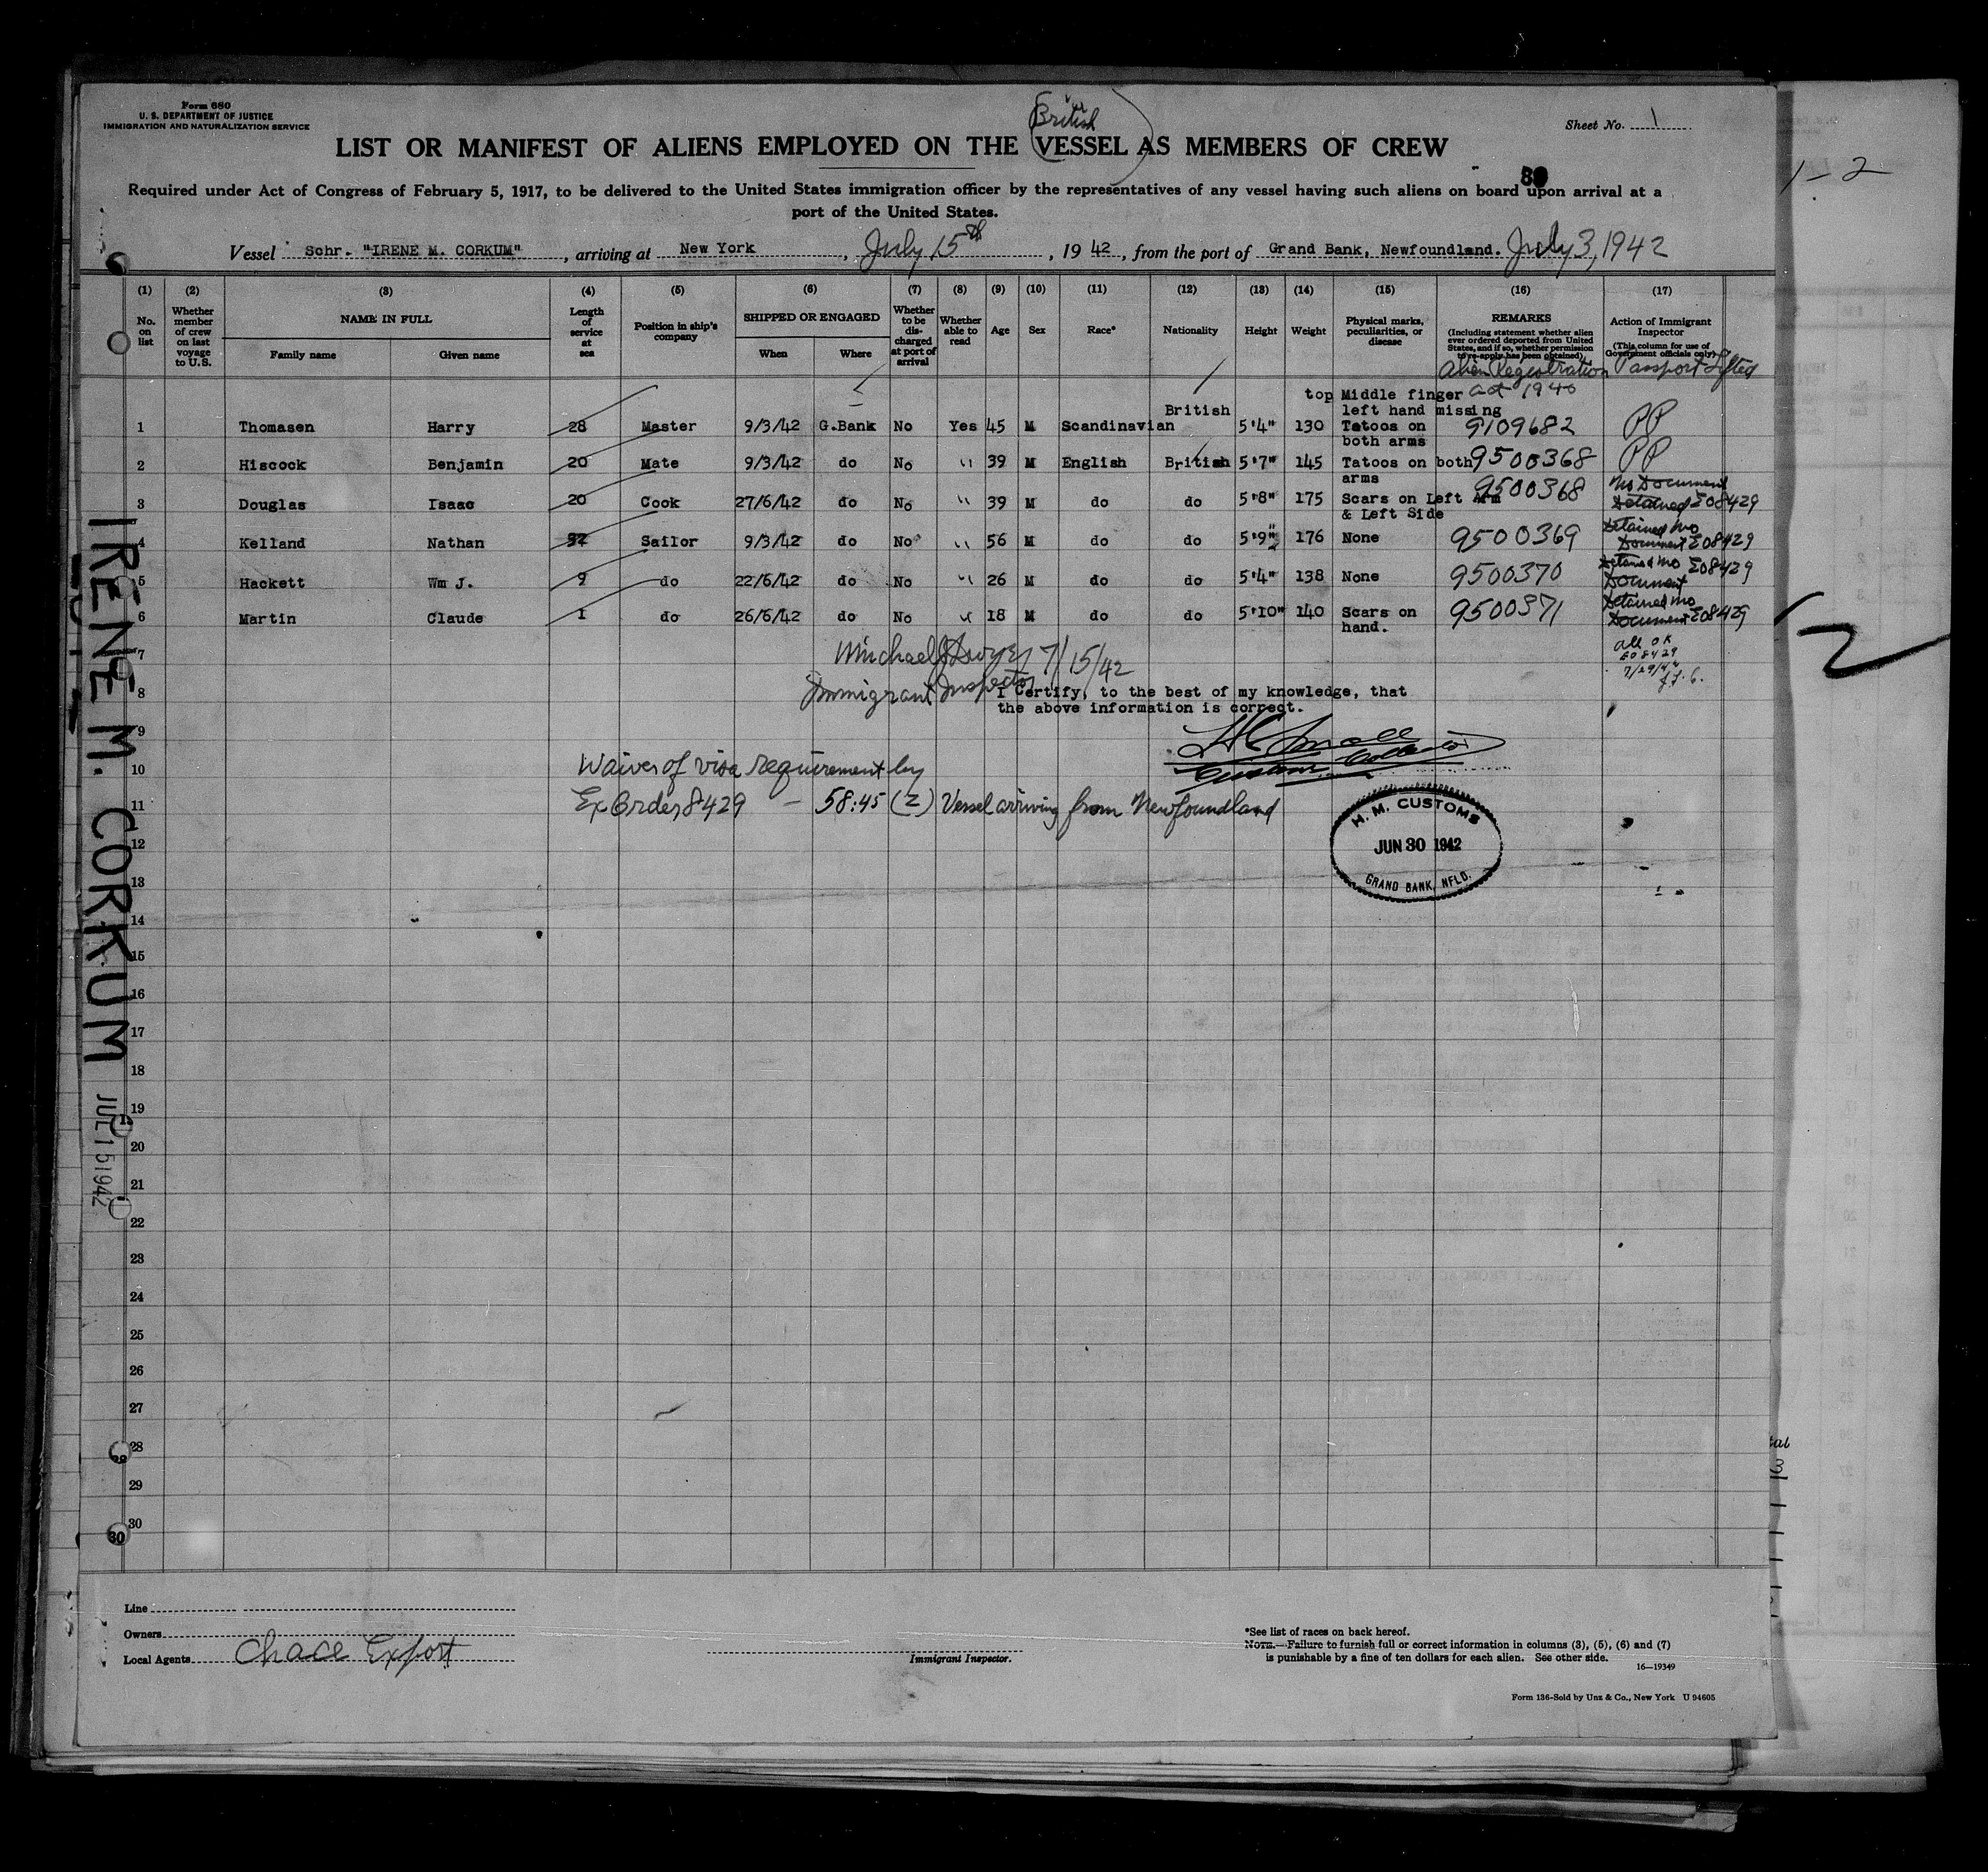 Form 680
U. S. DEPARTMENT OF JUSTICE
IMMIGRATION AND NATURALIZATION SERVICE
Sheet No. 1
British
LIST OR MANIFEST OF ALIENS EMPLOYED ON THE VESSEL AS MEMBERS OF CREW
Required under Act of Congress of February 5, 1917, to be delivered to the United States immigration officer by the representatives of any vessel having such aliens on board upon arrival at a
port of the United States.
Vessel Schr. "IRENE M. CORKUM", arriving at New York, July 15th, 1942, from the port of Grand Bank, Newfoundland. July 3, 1942
(1) (2) (3) (4) (5) (6) (7) (8) (9) (10) (11) (12) (13) (14) (15) (16) (17)
No. on list
Whether member of crew on last voyage to U.S.
NAME IN FULL
Family name Given name
Length of service at sea
Position in ship's company
SHIPPED OR ENGAGED
When Where
Whether to be discharged at port of arrival
Whether able to read
Age
Sex
Race*
Nationality
Height
Weight
Physical marks, peculiarities, or disease
REMARKS
(Including statement whether alien ever ordered deported from United States, and if so, whether permission to re-apply has been obtained)
Action of Immigrant Inspector
(This column for use of Government officials only)
Alien Registration act 1940
Passport Lifted
1 Thomasen Harry 28 Master 9/3/42 G.Bank No Yes 45 M Scandinavian British 5'4" 130 top Middle finger left hand missing Tatoos on both arms 9109682 PP
2 Hiscock Benjamin 20 Mate 9/3/42 do No " 39 M English British 5'7" 145 Tatoos on both arms 9500368 PP
3 Douglas Isaac 20 Cook 27/6/42 do No " 39 M do do 5'8" 175 Scars on Left Arm & Left Side 9500368 No Document Detained E08429
4 Kelland Nathan 37 Sailor 9/3/42 do No " 56 M do do 5'9" 176 None 9500369 Detained No Document E08429
5 Hackett Wm J. 9 do 22/6/42 do No " 26 M do do 5'4" 138 None 9500370 Detained No Document E08429
6 Martin Claude 1 do 26/6/42 do No " 18 M do do 5'10" 140 Scars on hand. 9500371 Detained No Document E08429
7 Michael J Dwyer 7/15/42
Immigrant Inspector
all OK
E08429
7/29/42
J.J.C.
8 I Certify, to the best of my knowledge, that
the above information is correct.
9
10 Waiver of visa requirement by
11 Ex Order 8429 - 58:45 (Z) Vessel arriving from Newfoundland
H. M. CUSTOMS
JUN 30 1942
GRAND BANK, NFLD.
12
13
14
15
16
17
18
19
20
21
22
23
24
25
26
27
28
29
30
30
IRENE M. CORKUM JUL 15 1942
1-2
2
tal
3
Line
Owners
Local Agents Chace Export
Immigrant Inspector.
*See list of races on back hereof.
NOTE.—Failure to furnish full or correct information in columns (3), (5), (6) and (7)
is punishable by a fine of ten dollars for each alien. See other side.
16—19349
Form 136-Sold by Unz & Co., New York U 94605